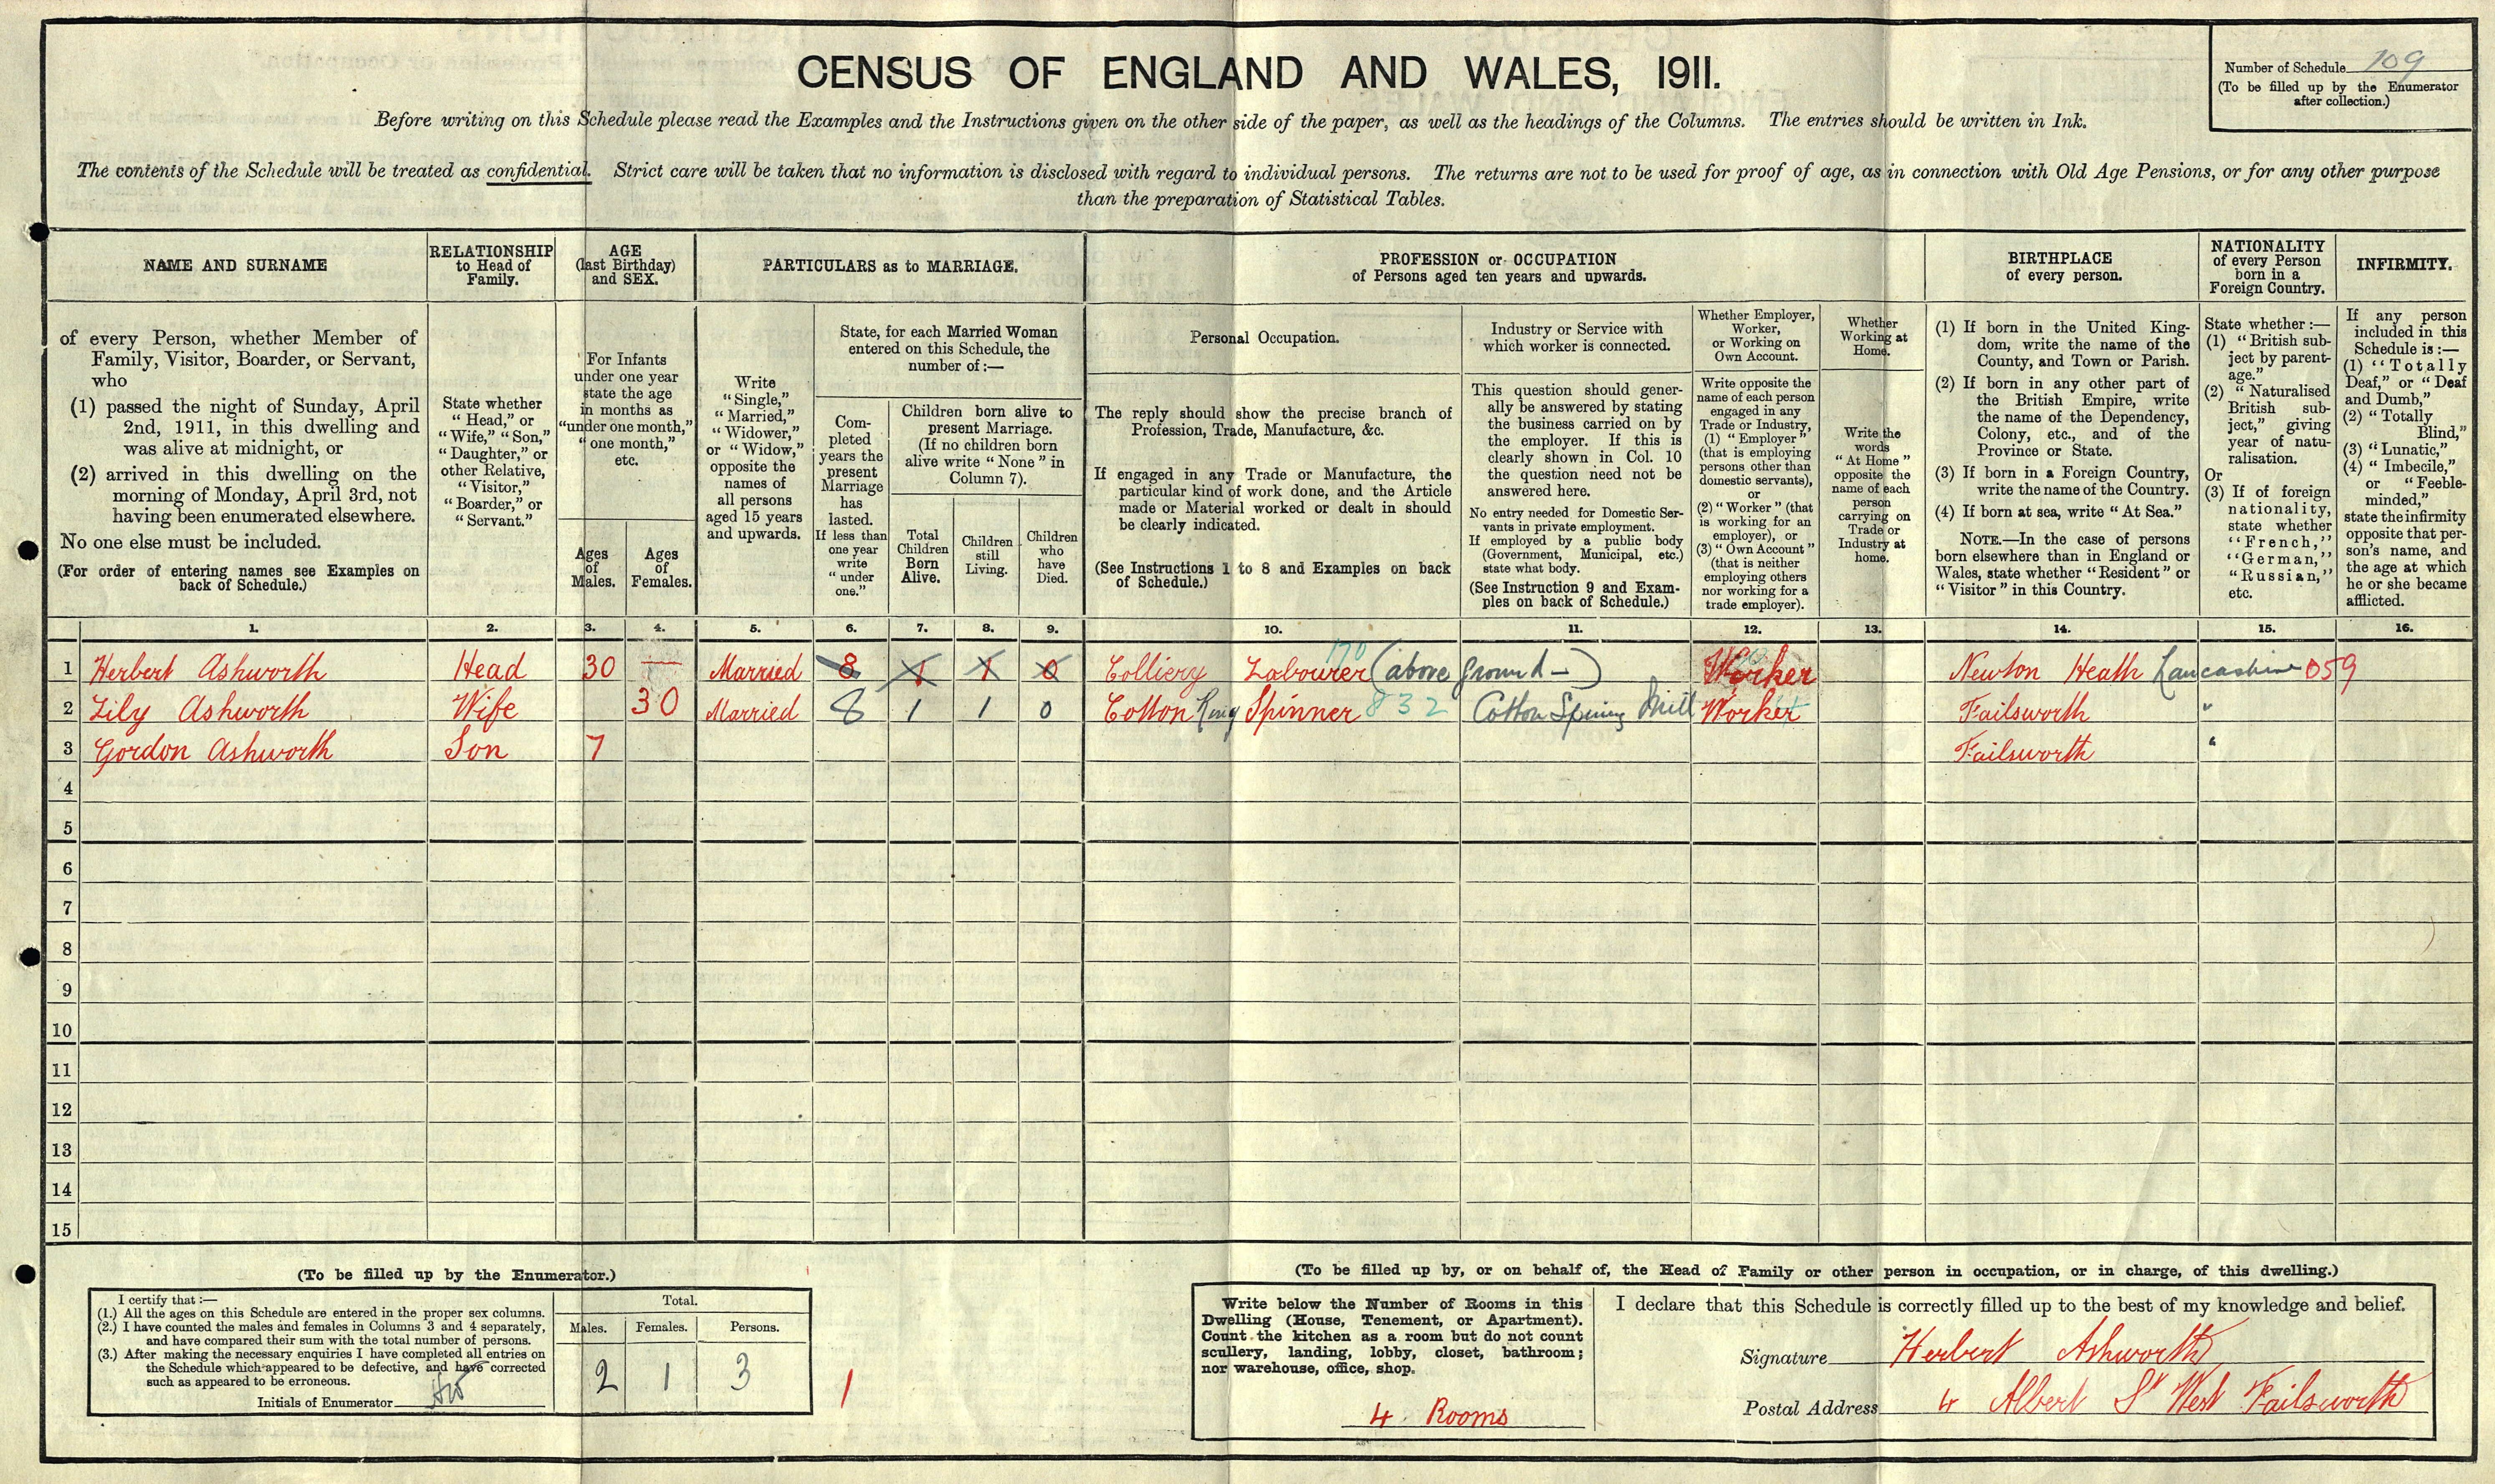 CENSUS OF ENGLAND AND WALES, 1911.
Number of Schedule 109
(To be filled up by the Enumerator
after collection.)
Before writing on this Schedule please read the Examples and the Instructions given on the other side of the paper, as well as the headings of the Columns. The entries should be written in Ink.
The contents of the Schedule will be treated as confidential. Strict care will be taken that no information is disclosed with regard to individual persons. The returns are not to be used for proof of age, as in connection with Old Age Pensions, or for any other purpose
than the preparation of Statistical Tables.
NAME AND SURNAME
RELATIONSHIP
to Head of
Family.
AGE
(last Birthday)
and SEX.
PARTICULARS as to MARRIAGE.
PROFESSION or OCCUPATION
of Persons aged ten years and upwards.
BIRTHPLACE
of every person.
NATIONALITY
of every Person
born in a
Foreign Country.
INFIRMITY.
of every Person, whether Member of
Family, Visitor, Boarder, or Servant,
who
(1) passed the night of Sunday, April
2nd, 1911, in this dwelling and
was alive at midnight, or
(2) arrived in this dwelling on the
morning of Monday, April 3rd, not
having been enumerated elsewhere.
No one else must be included.
(For order of entering names see Examples on
back of Schedule.)
State whether
"Head," or
"Wife," "Son,"
"Daughter," or
other Relative,
"Visitor,"
"Boarder," or
"Servant."
For Infants
under one year
state the age
in months as
"under one month,"
"one month,"
etc.
Ages
of
Males.
Ages
of
Females.
Write
"Single,"
"Married,"
"Widower,"
or "Widow,"
opposite the
names of
all persons
aged 15 years
and upwards.
State, for each Married Woman
entered on this Schedule, the
number of:—
Com-
pleted
years the
present
Marriage
has
lasted.
If less than
one year
write
"under
one."
Children born alive to
present Marriage.
(If no children born
alive write "None" in
Column 7).
Total
Children
Born
Alive.
Children
still
Living.
Children
who
have
Died.
Personal Occupation.
The reply should show the precise branch of
Profession, Trade, Manufacture, &c.
If engaged in any Trade or Manufacture, the
particular kind of work done, and the Article
made or Material worked or dealt in should
be clearly indicated.
(See Instructions 1 to 8 and Examples on back
of Schedule.)
Industry or Service with
which worker is connected.
This question should gener-
ally be answered by stating
the business carried on by
the employer. If this is
clearly shown in Col. 10
the question need not be
answered here.
No entry needed for Domestic Ser-
vants in private employment.
If employed by a public body
(Government, Municipal, etc.)
state what body.
(See Instruction 9 and Exam-
ples on back of Schedule.)
Whether Employer,
Worker,
or Working on
Own Account.
Write opposite the
name of each person
engaged in any
Trade or Industry,
(1) "Employer"
(that is employing
persons other than
domestic servants),
or
(2) "Worker" (that
is working for an
employer), or
(3) "Own Account"
(that is neither
employing others
nor working for a
trade employer).
Whether
Working at
Home.
Write the
words
"At Home"
opposite the
name of each
person
carrying on
Trade or
Industry at
home.
(1) If born in the United King-
dom, write the name of the
County, and Town or Parish.
(2) If born in any other part of
the British Empire, write
the name of the Dependency,
Colony, etc., and of the
Province or State.
(3) If born in a Foreign Country,
write the name of the Country.
(4) If born at sea, write "At Sea."
NOTE.—In the case of persons
born elsewhere than in England or
Wales, state whether "Resident" or
"Visitor" in this Country.
State whether:—
(1) "British sub-
ject by parent-
age."
(2) "Naturalised
British sub-
ject," giving
year of natu-
ralisation.
Or
(3) If of foreign
nationality,
state whether
"French,"
"German,"
"Russian,"
etc.
If any person
included in this
Schedule is:—
(1) "Totally
Deaf," or "Deaf
and Dumb,"
(2) "Totally
Blind,"
(3) "Lunatic,"
(4) "Imbecile,"
or "Feeble-
minded,"
state the infirmity
opposite that per-
son's name, and
the age at which
he or she became
afflicted.
1. 2. 3. 4. 5. 6. 7. 8. 9. 10. 11. 12. 13. 14. 15. 16.
1 Herbert Ashworth Head 30 — Married 8 1 1 0 Colliery Labourer 170 (above ground—) Worker Newton Heath Lancashire 059
2 Lily Ashworth Wife 30 Married 8 1 1 0 Cotton Ring Spinner 832 Cotton Mill Worker Failsworth "
3 Gordon Ashworth Son 7 Failsworth "
4
5
6
7
8
9
10
11
12
13
14
15
(To be filled up by the Enumerator.)
I certify that:—
(1.) All the ages on this Schedule are entered in the proper sex columns.
(2.) I have counted the males and females in Columns 3 and 4 separately,
and have compared their sum with the total number of persons.
(3.) After making the necessary enquiries I have completed all entries on
the Schedule which appeared to be defective, and have corrected
such as appeared to be erroneous.
Initials of Enumerator
Total.
Males. Females. Persons.
2 1 3
1
(To be filled up by, or on behalf of, the Head of Family or other person in occupation, or in charge, of this dwelling.)
Write below the Number of Rooms in this
Dwelling (House, Tenement, or Apartment).
Count the kitchen as a room but do not count
scullery, landing, lobby, closet, bathroom;
nor warehouse, office, shop.
4 Rooms
I declare that this Schedule is correctly filled up to the best of my knowledge and belief.
Signature Herbert Ashworth
Postal Address 4 Albert St West Failsworth